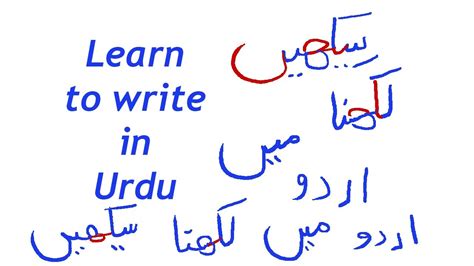 Learn
to write
in
Urdu
سیکھیں
لکھنا
میں
اردو
اردو میں لکھنا سیکھیں